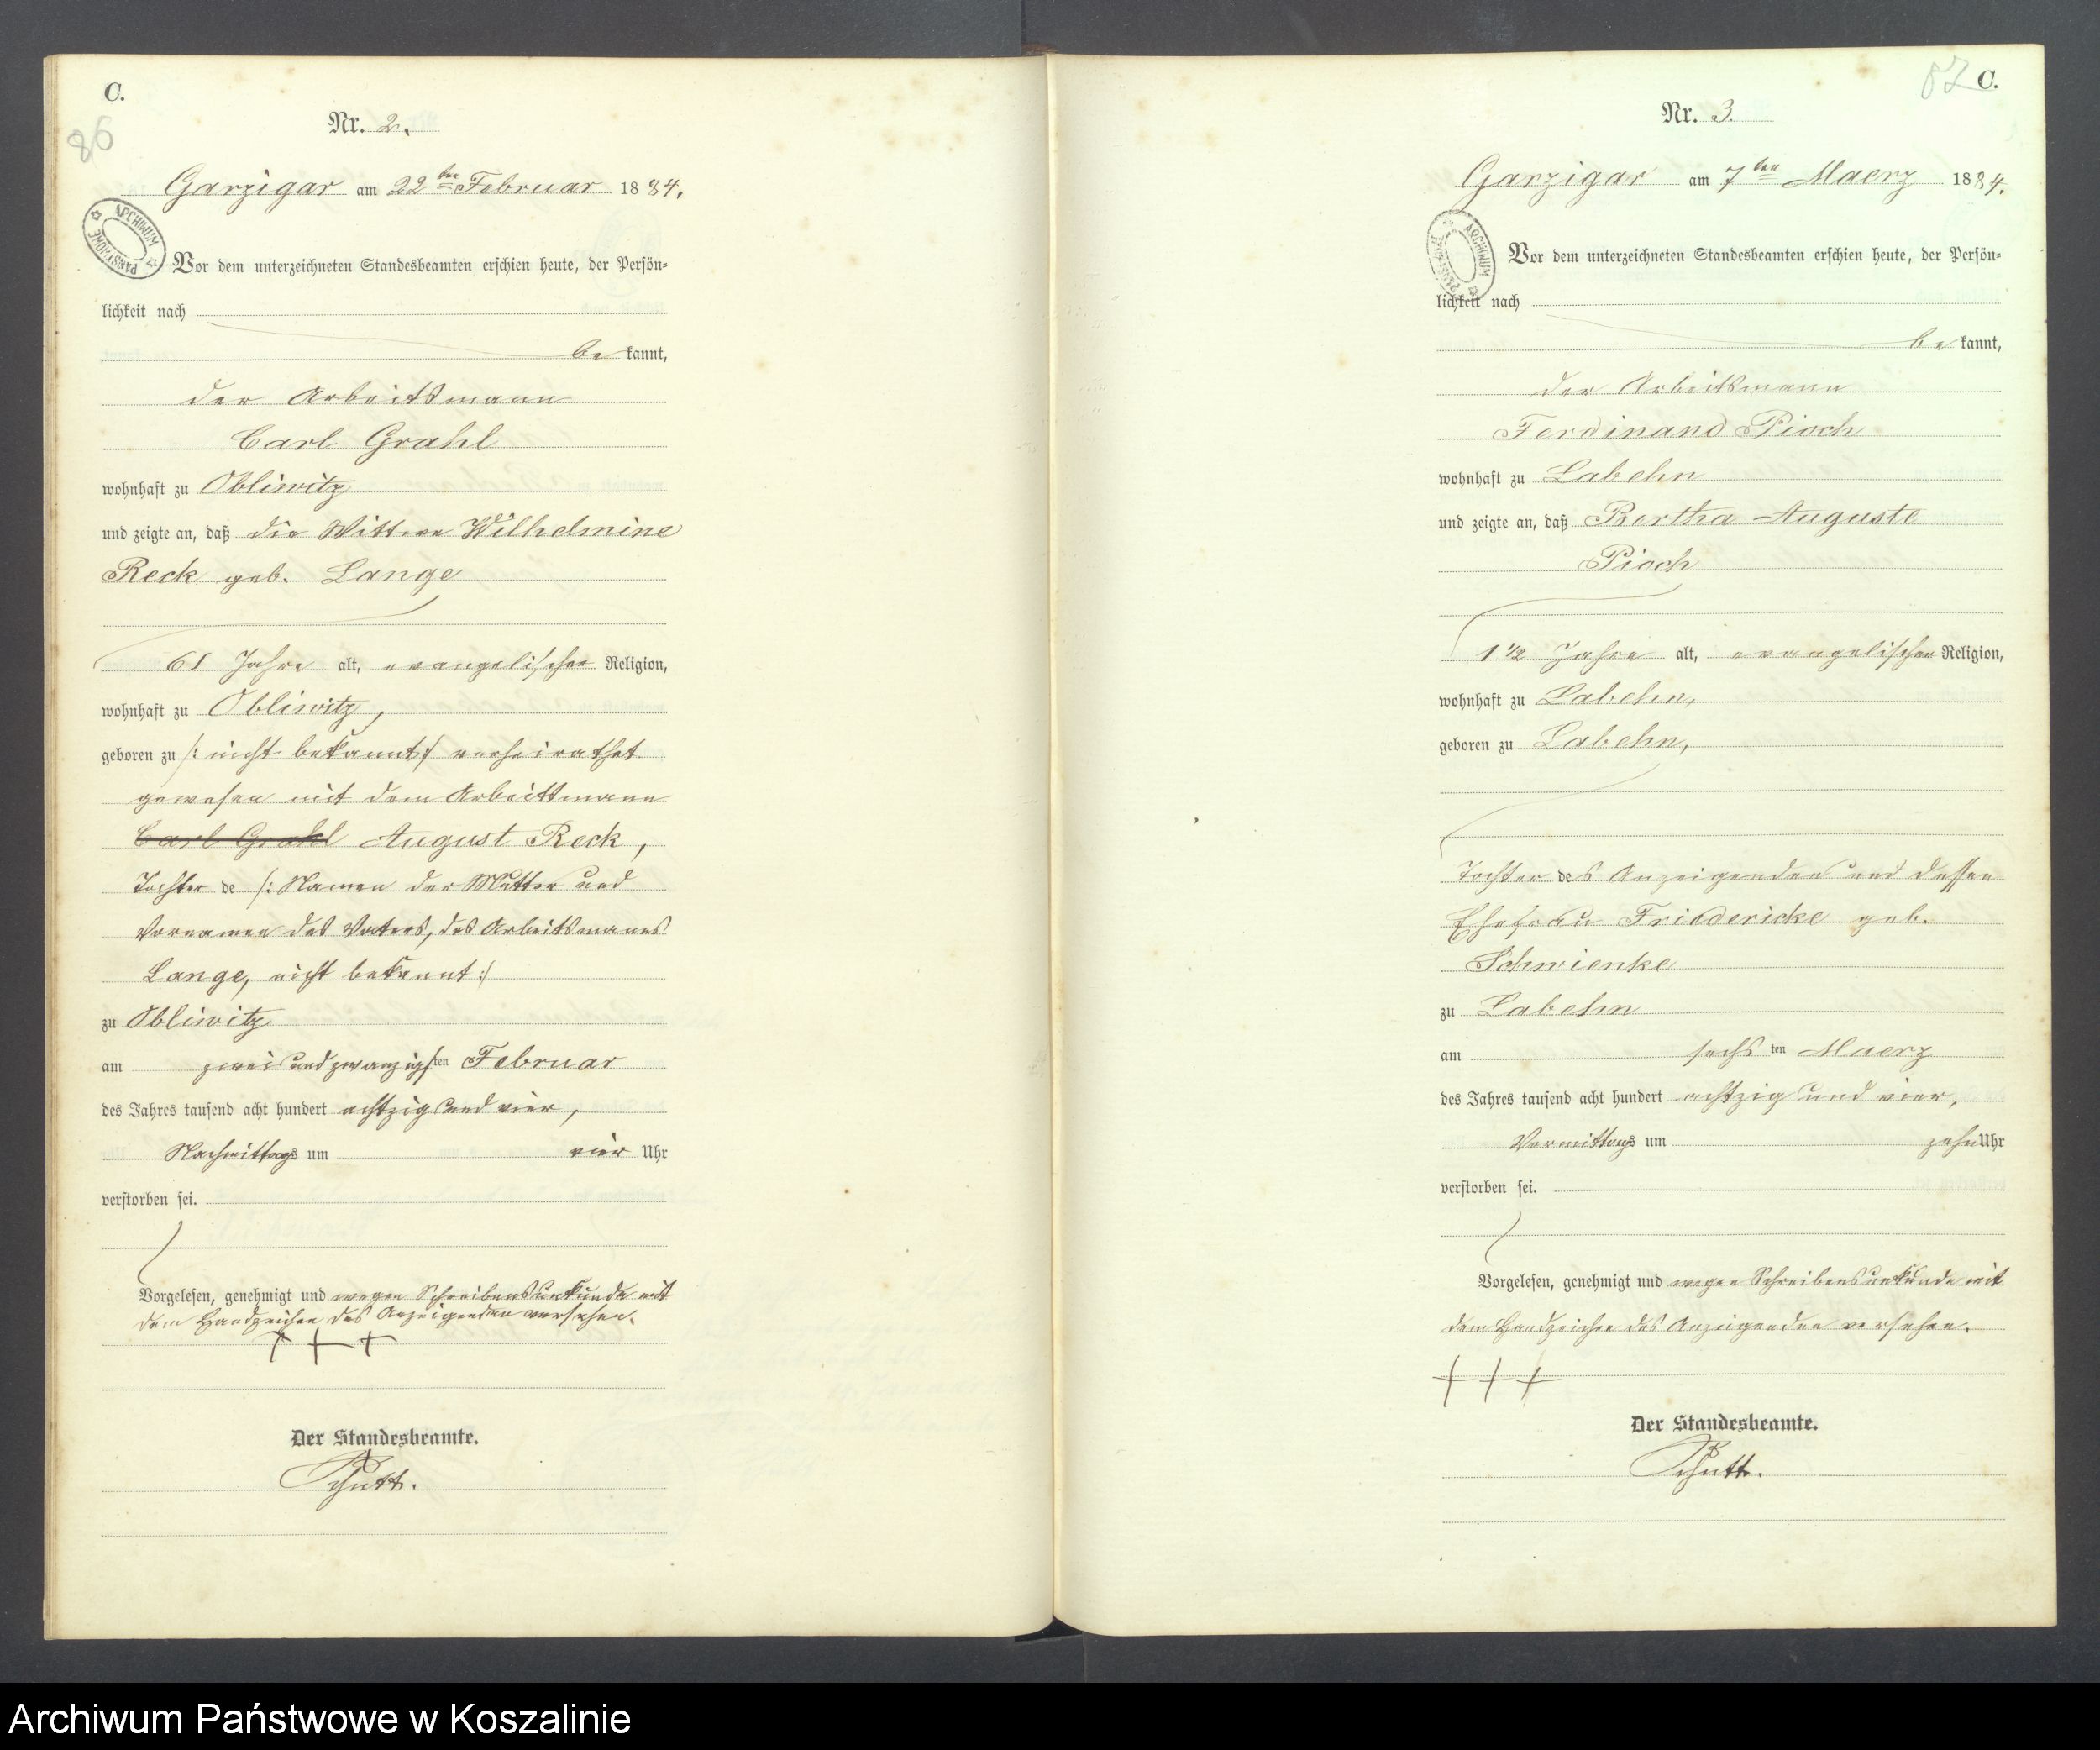 C.
86
Nr. 2.
Garzigar am 22ten Februar 1884.
ARCHIWUM PAŃSTWOWE
Vor dem unterzeichneten Standesbeamten erschien heute, der Persön-
lichkeit nach
be kannt,
der Arbeitsmann
Carl Grahl
wohnhaft zu Obliwitz
und zeigte an, daß die Wittwe Wilhelmine
Reck geb. Lange
61 Jahre alt, evangelischer Religion,
wohnhaft zu Obliwitz,
geboren zu /: nicht bekannt :/ verheirathet
gewesen mit dem Arbeitsmann
Carl Grahl August Reck,
Tochter de /: Namen der Mutter und
Vornamen des Vaters, des Arbeitsmanns
Lange, nicht bekannt :/
zu Obliwitz
am zwei und zwanzigsten Februar
des Jahres tausend acht hundert achtzig und vier,
Nachmittags um vier Uhr
verstorben sei.
Vorgelesen, genehmigt und wegen Schreibensunkunde mit
dem Handzeichen des Anzeigenden versehen.
+ + +
Der Standesbeamte.
C.
Nr. 3.
Garzigar am 7ten Maerz 1884.
ARCHIWUM PAŃSTWOWE
Vor dem unterzeichneten Standesbeamten erschien heute, der Persön-
lichkeit nach
be kannt,
der Arbeitsmann
Ferdinand Pioch
wohnhaft zu Labehn
und zeigte an, daß Bertha Auguste
Pioch
1 1/2 Jahre alt, evangelischer Religion,
wohnhaft zu Labehn,
geboren zu Labehn,
Tochter des Anzeigenden und dessen
Ehefrau Friedericke geb.
Schwienke
zu Labehn
am sechsten Maerz
des Jahres tausend acht hundert achtzig und vier,
Vormittags um zehn Uhr
verstorben sei.
Vorgelesen, genehmigt und wegen Schreibensunkunde mit
dem Handzeichen des Anzeigenden versehen.
+ + +
Der Standesbeamte.
Archiwum Państwowe w Koszalinie